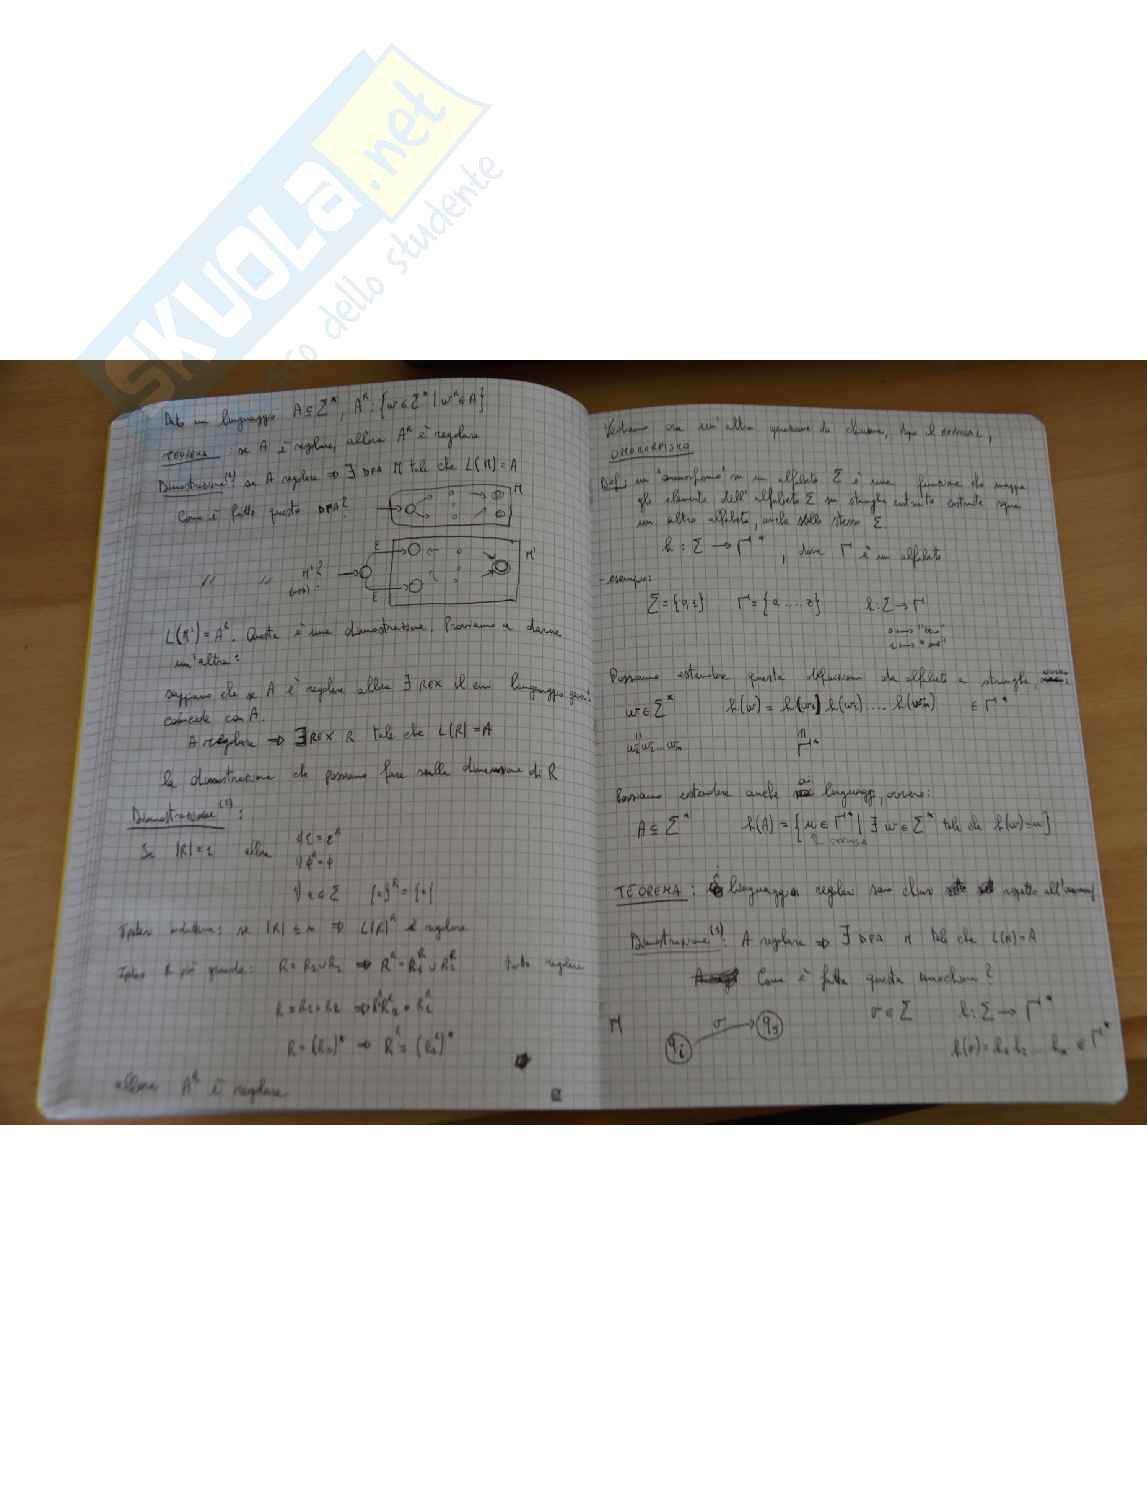 SKUOLA.net
dello studente
Dato un linguaggio A ⊆ Σ*, A^R: {w ∈ Σ* | w^R ∈ A}
TEOREMA se A è regolare, allora A^R è regolare
Dimostrazione(1) se A regolare ⇒ ∃ DFA M tale che L(M) = A
Com'è fatto questo DFA?
M
ε
M'
// // M'?
(NFA)
ε
L(M') = A^R. Questa è una dimostrazione. Proviamo a darne
un'altra:
sappiamo che se A è regolare allora ∃ REX il cui linguaggio
coincide con A.
A regolare ⇒ ∃ REX R tale che L(R) = A
la dimostrazione che possiamo fare sulla dimensione di R
Dimostrazione(2):
Se |R| = 1 allora ε = ε^R
φ^R = φ
∀ a ∈ Σ {a}^R = {a}
Ipotesi induttiva: se |R| ≤ n ⇒ L(R)^R è regolare
Ipotesi R più grande: R = R1 ∪ R2 ⇒ R^R = R1^R ∪ R2^R tutto regolare
R = R1 ∘ R2 ⇒ R^R = R2^R ∘ R1^R
R = (R1)* ⇒ R^R = (R1^R)*
allora A^R è regolare
Vediamo ora un'altra di chiusura,
OMOMORFISMO
Def: un "omomorfismo" su un alfabeto Σ è una funzione che mappa
gli elementi dell'alfabeto Σ su stringhe costruite sopra
un altro alfabeto, anche sullo stesso Σ.
h : Σ → Γ*, dove Γ è un alfabeto
- esempio:
Σ = {0,1} Γ = {a ... z} h: Σ → Γ
0 ↦
1 ↦
Possiamo estendere questa definizione da alfabeto a stringhe,
w ∈ Σ* h(w) = h(w1) h(w2) .... h(wn) ∈ Γ*
w1w2...wn Γ*
Possiamo estendere anche a linguaggi, ovvero:
A ⊆ Σ* h(A) = {u ∈ Γ* | ∃ w ∈ Σ* tale che h(w) = u}
TEOREMA: i linguaggi regolari sono chiusi rispetto all'
Dimostrazione(1): A regolare ⇒ ∃ DFA M tale che L(M) = A
Come è fatta questa macchina?
M
qi σ qj
σ ∈ Σ h: Σ → Γ*
h(σ) = h1 h2 ... hn ∈ Γ*